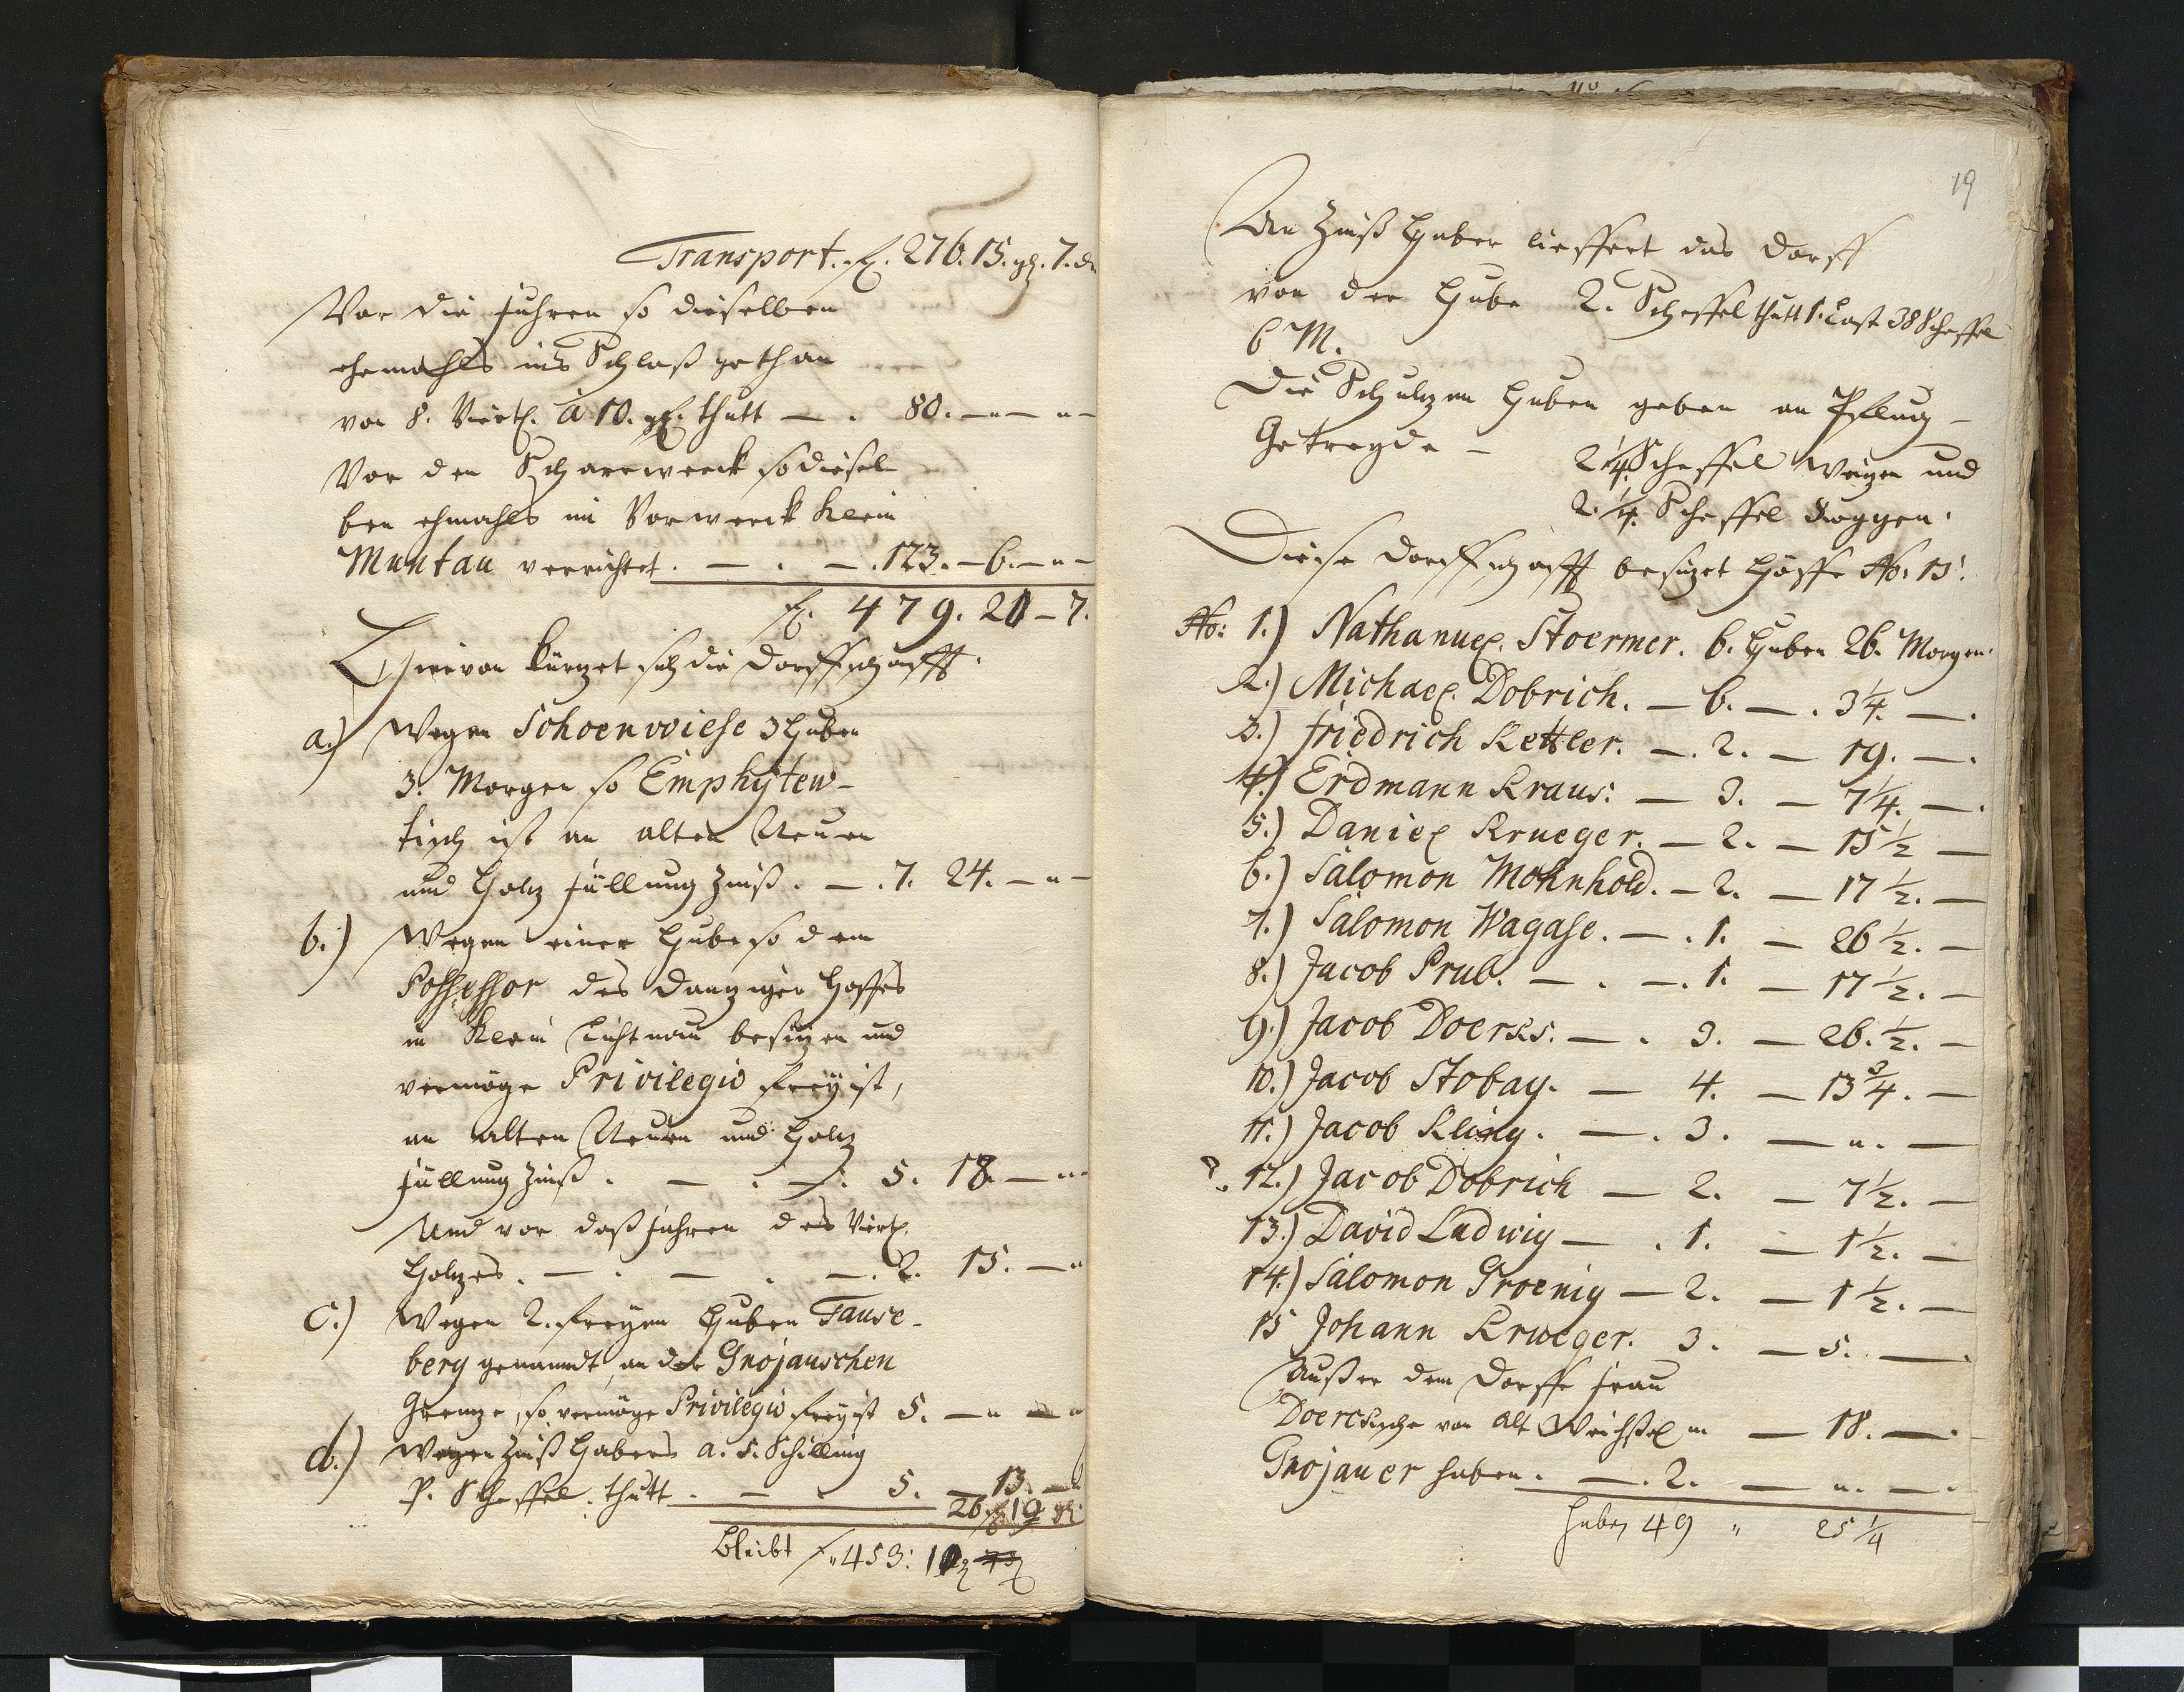 Transport. fl. 276. 15. gl. 7. d.
Vor die Fuhren so dieselben
ehemahls ins Schloß gethan
von 8. Viertl. à 10. fl. thutt — . 80. — " — " —
Vor den Scharwerck so diesel-
ben ehmahls im Vorwerck Klein
Muntau verrichtet. — . — . 123. — 6. — " —
fl. 479. 21 — 7.
Hievon kürtzet sich die Dorffschafft.
a.) Wegen Schoenwiese 3 Huben
3. Morgen so Emphytew-
tisch ist an alten Neuen
und Holtz Füllung Zinß. — . 7. 24. — " —
b.) Wegen einer Hube so dem
Possessor des Dantziger Hoffes
in Klein Lichtnau besitzen und
vermöge Privilegio frey ist,
an alten Neuen und Holtz
Füllung Zinß. — . — . 5. 18. — "
Und vor daß Fahren des Viertl.
Holtzes. — . — . — . 2. 15. — "
c.) Wegen 2. freyen Huben Tause-
berg genanndt, an der Gnojauschen
Grentze, so vermöge Privilegio frey ist 5. — "
d.) Wegen Zinß Habers a. 5. Schilling
P. Scheffel. thutt. — . 5. — 13. —
26 fl 19 gl.
bleibt f " 453: 10
19
An Zinß Haber lieffert das Dorff
von der Hube 2. Scheffel thutt 1. Last 38 Scheffel
6 M.
Die Schultzen Huben geben an Pflug-
Getreyde — 2 1/4. Scheffel Weitzen und
2. 1/4. Scheffel Roggen.
Diese Dorffschafft besitzet Höffe No: 15.
No: 1.) Nathanael Stoermer. 6. Huben 26. Morgen.
2.) Michael Dobrich. — 6. — . 3 1/4. — .
3.) Friedrich Kettler. — . 2. — 19. — .
4.) Erdmann Kraus: — 3. — 7 1/4. — .
5.) Daniel Krueger. — 2. — 15 1/2 —
6.) Salomon Mohnhold. — 2. — 17 1/2. —
7.) Salomon Wagase. — . 1. — 26 1/2. —
8.) Jacob Prub. — . — . 1. — 17 1/2. —
9.) Jacob Doercks. — . 3. — 26. 1/2. —
10.) Jacob Stobay. — 4. — 13 3/4. —
11.) Jacob Kling. — . 3. — " . —
12.) Jacob Dobrich — 2. — 7 1/2. —
13.) David Ludwig — . 1. — 1 1/2. —
14.) Salomon Groenig — 2. — 1 1/2. —
15 Johann Krueger. 3. — 5. — .
Außer dem Dorffe Frau
Doercksche von alt Weichsel " — 18. — .
Gnojauer Huben. — . 2. — " . — .
Huben 49 " 25 1/4